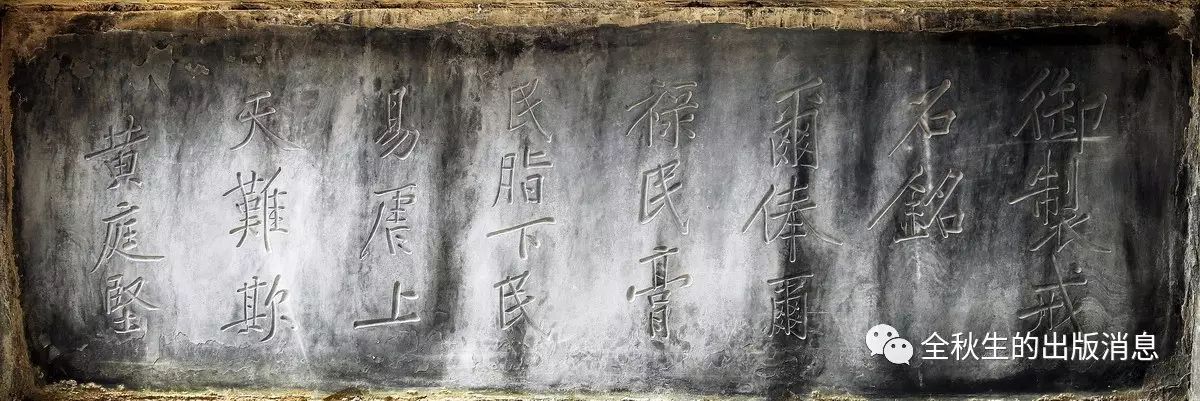 御製戒
石銘
爾俸爾
祿民膏
民脂下民
易虐上
天難欺
黃庭堅
全秋生的出版消息